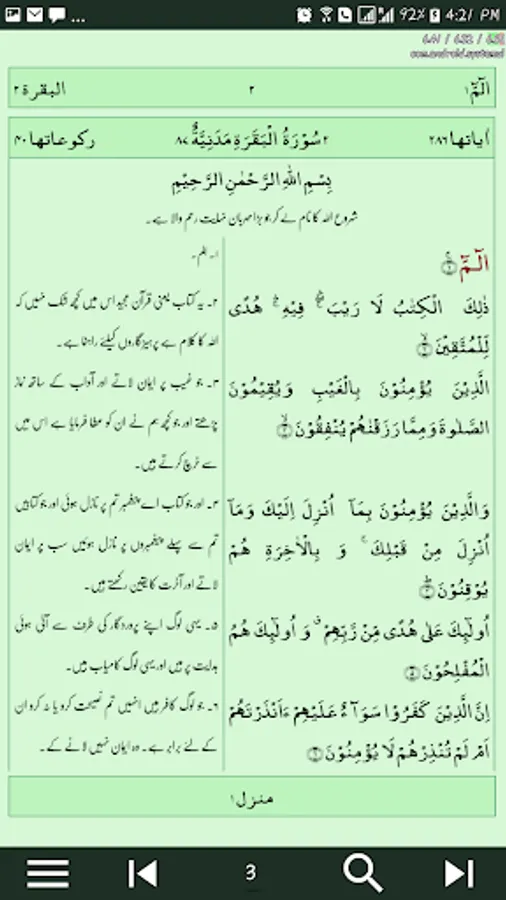 ... 92% 4:21 PM
com.android.systemui
الٓمّٓ ۱ ۲ البقرة ۲
اٰیاتها ۲۸۶ ۲ سُوْرَةُ الْبَقَرَةِ مَدَنِيَّةٌ ۸۷ رکوعاتها ۴۰
بِسْمِ اللهِ الرَّحْمٰنِ الرَّحِيْمِ
شروع اللہ کا نام لے کر جو بڑا مہربان نہایت رحم والا ہے۔
الٓمّٓ ۚ﴿۱﴾
ذٰلِكَ الْكِتٰبُ لَا رَيْبَ ۛۖ فِيْهِ ۛۚ هُدًى
لِّلْمُتَّقِيْنَ ۙ﴿۲﴾
الَّذِيْنَ يُؤْمِنُوْنَ بِالْغَيْبِ وَيُقِيْمُوْنَ
الصَّلٰوةَ وَمِمَّا رَزَقْنٰهُمْ يُنْفِقُوْنَ ۙ﴿۳﴾
وَالَّذِيْنَ يُؤْمِنُوْنَ بِمَآ اُنْزِلَ اِلَيْكَ وَمَآ
اُنْزِلَ مِنْ قَبْلِكَ ۚ وَ بِالْاٰخِرَةِ هُمْ
يُوْقِنُوْنَ ؕ﴿۴﴾
اُولٰٓئِكَ عَلٰى هُدًى مِّنْ رَّبِّهِمْ ۗ وَ اُولٰٓئِكَ هُمُ
الْمُفْلِحُوْنَ ﴿۵﴾
اِنَّ الَّذِيْنَ كَفَرُوْا سَوَآءٌ عَلَيْهِمْ ءَاَنْذَرْتَهُمْ
اَمْ لَمْ تُنْذِرْهُمْ لَا يُؤْمِنُوْنَ ﴿۶﴾
۱۔ الم۔
۲۔ یہ کتاب یعنی قرآن مجید اس میں کچھ شک نہیں کہ
اللہ کا کلام ہے پرہیزگاروں کیلئے راہنما ہے۔
۳۔ جو غیب پر ایمان لاتے اور آداب کے ساتھ نماز
پڑھتے اور جو کچھ ہم نے ان کو عطا فرمایا ہے اس میں
سے خرچ کرتے ہیں۔
۴۔ اور جو کتاب اے پیغمبر تم پر نازل ہوئی اور جو کتابیں
تم سے پہلے پیغمبروں پر نازل ہوئیں سب پر ایمان
لاتے اور آخرت کا یقین رکھتے ہیں۔
۵۔ یہی لوگ اپنے پروردگار کی طرف سے آئی ہوئی
ہدایت پر ہیں اور یہی لوگ کامیاب ہیں۔
۶۔ جو لوگ کافر ہیں انہیں تم نصیحت کرو یا نہ کرو ان
کے لئے برابر ہے۔ وہ ایمان نہیں لانے کے۔
منزل ۱
3